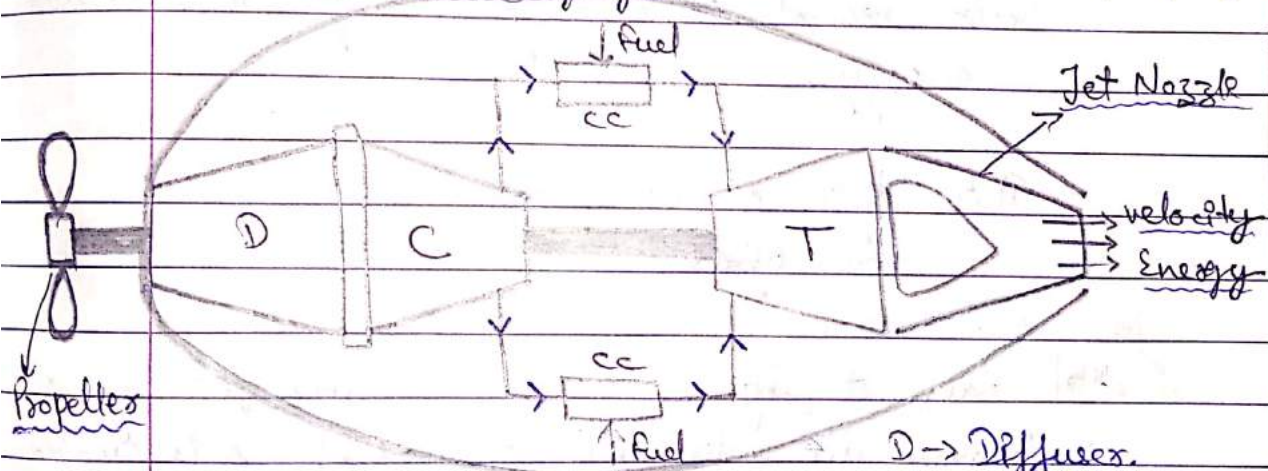 Fuel
CC
Jet Nozzle
D
C
T
velocity
Energy
CC
Propeller
Fuel
D -> Diffuser.